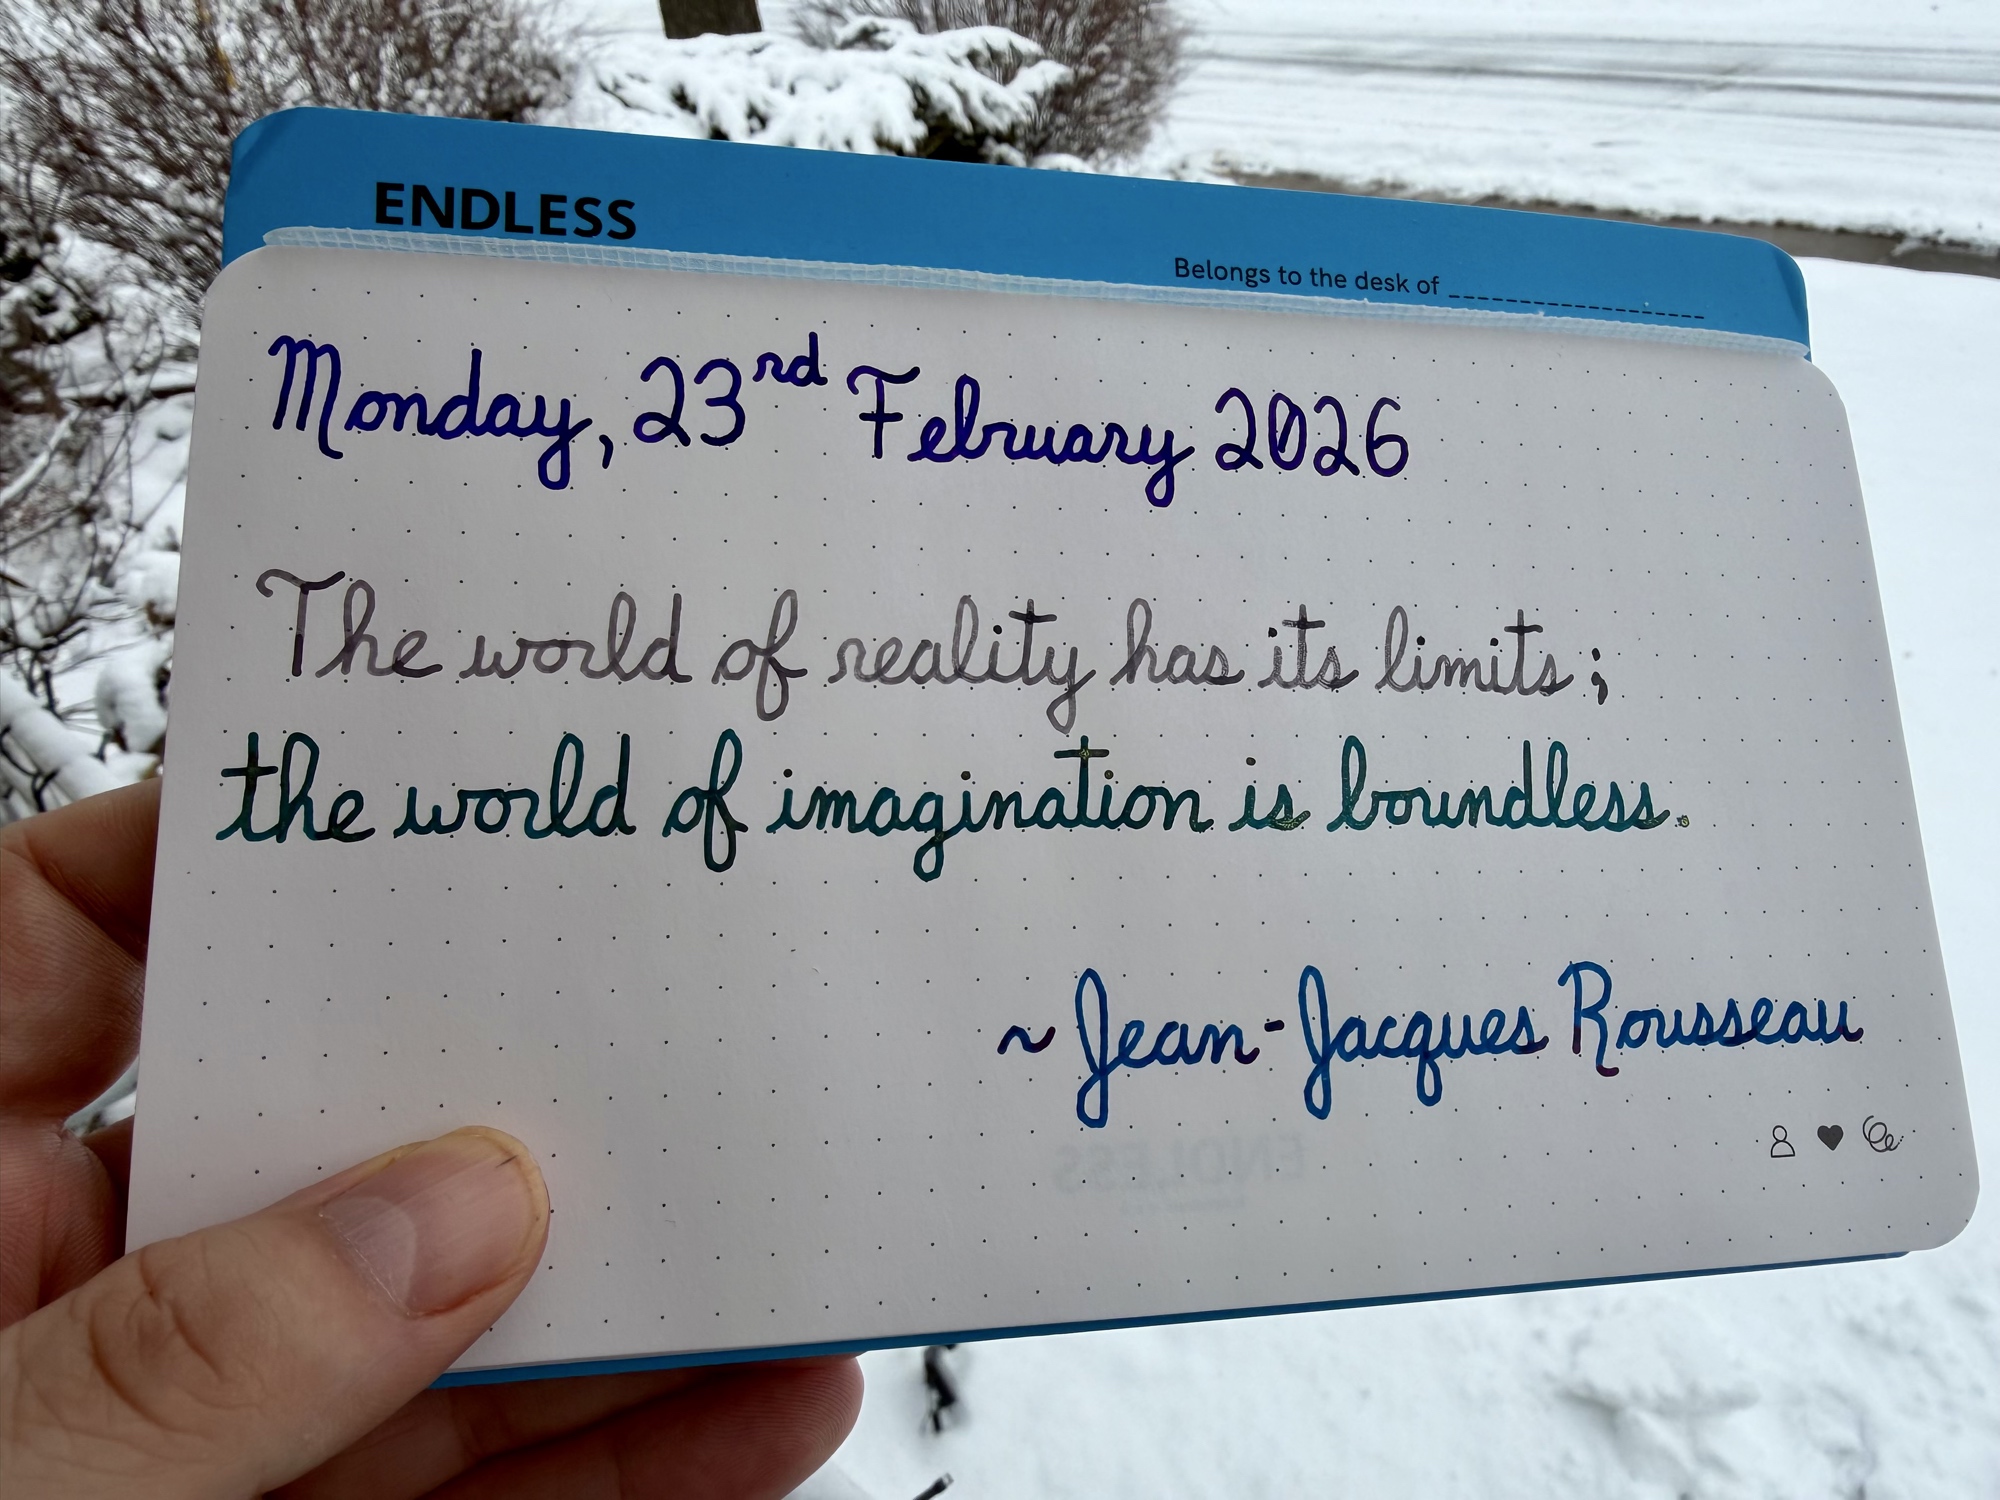 ENDLESS
Belongs to the desk of
Monday, 23rd February 2026
The world of reality has its limits;
the world of imagination is boundless.
~ Jean-Jacques Rousseau
ENDLESS